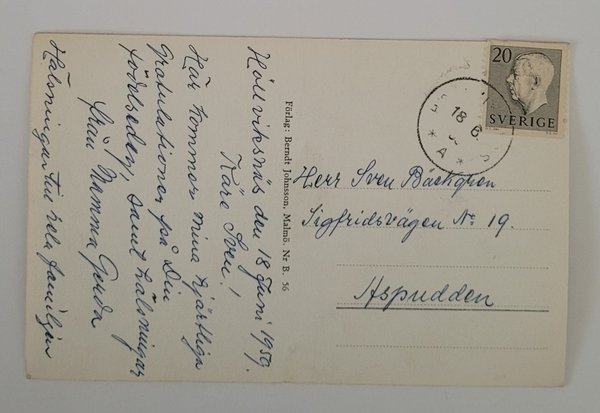 Höllviksnäs den 18 Juni 1959.
Käre Sven!
Här kommer mina hjärtliga
Gratulationer på Din
födelsedag, samt hälsningar
från Mamma Gouda
Hälsningar till hela familjen
Förlag: Berndt Johnsson, Malmö. Nr B. 56
20
SVERIGE
18 6
* A *
Herr Sven Bäckgren
Sigfridsvägen No 19.
Aspudden